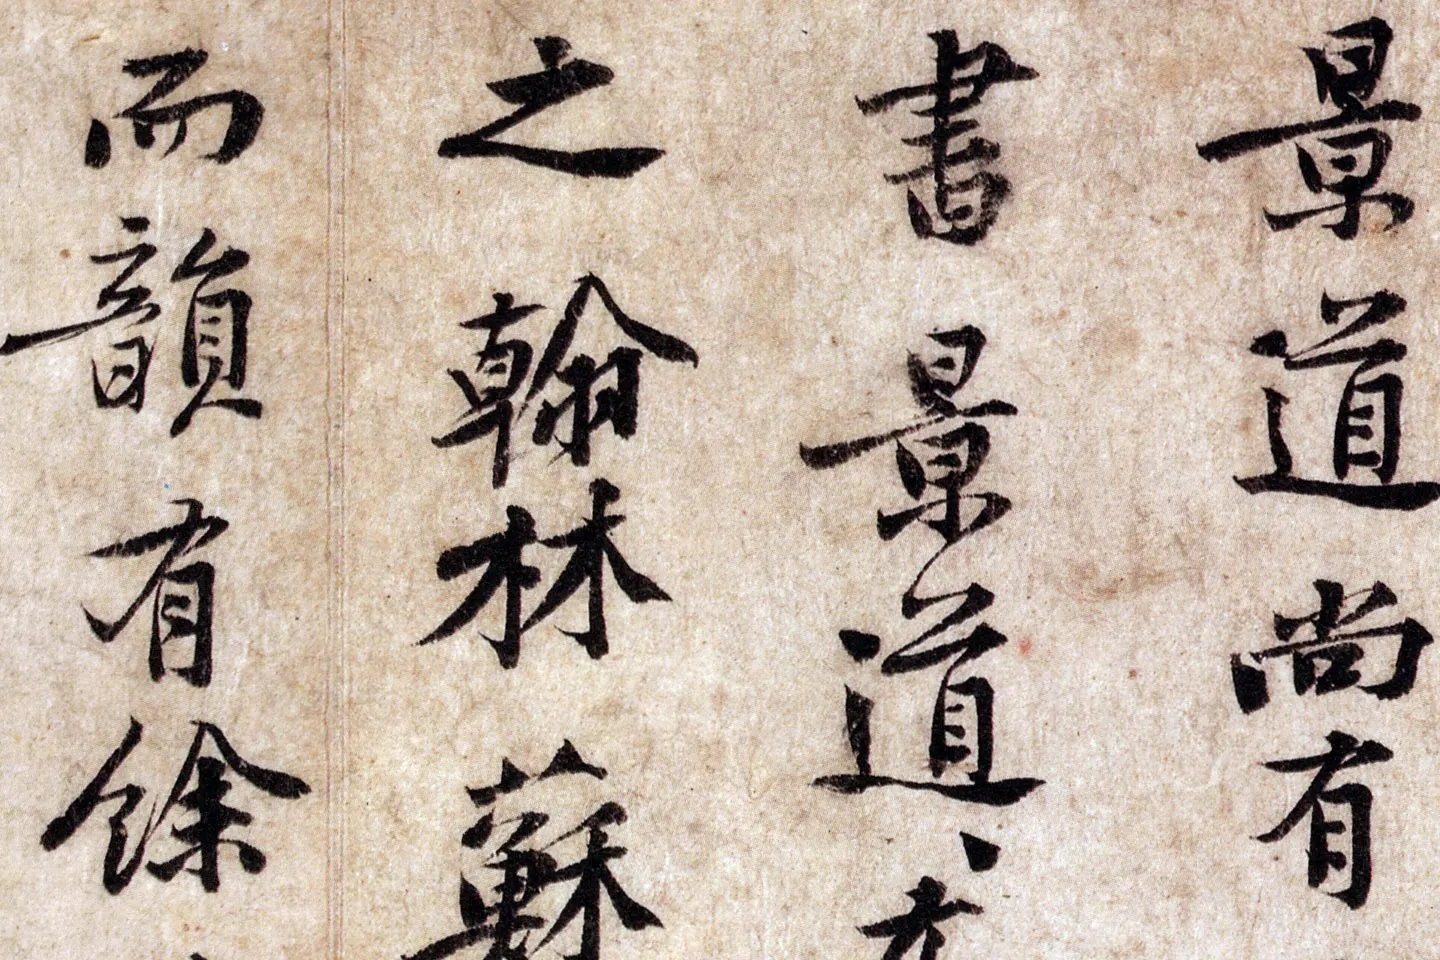 景道尚有
書景道
之翰林蘇
而韻有餘